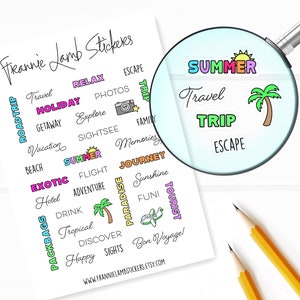 Freannie Lamb Stickers
ROADTRIP
Travel
RELAX
ESCAPE
HOLIDAY
PHOTOS
TRIP
GETAWAY
Explore
FAMILY
SIGHTSEE
Vacation
Memories
SUMMER
BEACH
FLIGHT
JOURNEY
EXOTIC
ADVENTURE
PARADISE
Sunshine
Hotel
FUN!
TOURIST
PACKBAGS
DRINK
Tropical
DISCOVER
Happy
SIGHTS
Bon Voyage!
WWW.FRANNIELAMBSTICKERS.ETSY.COM
SUMMER
Travel
TRIP
ESCAPE